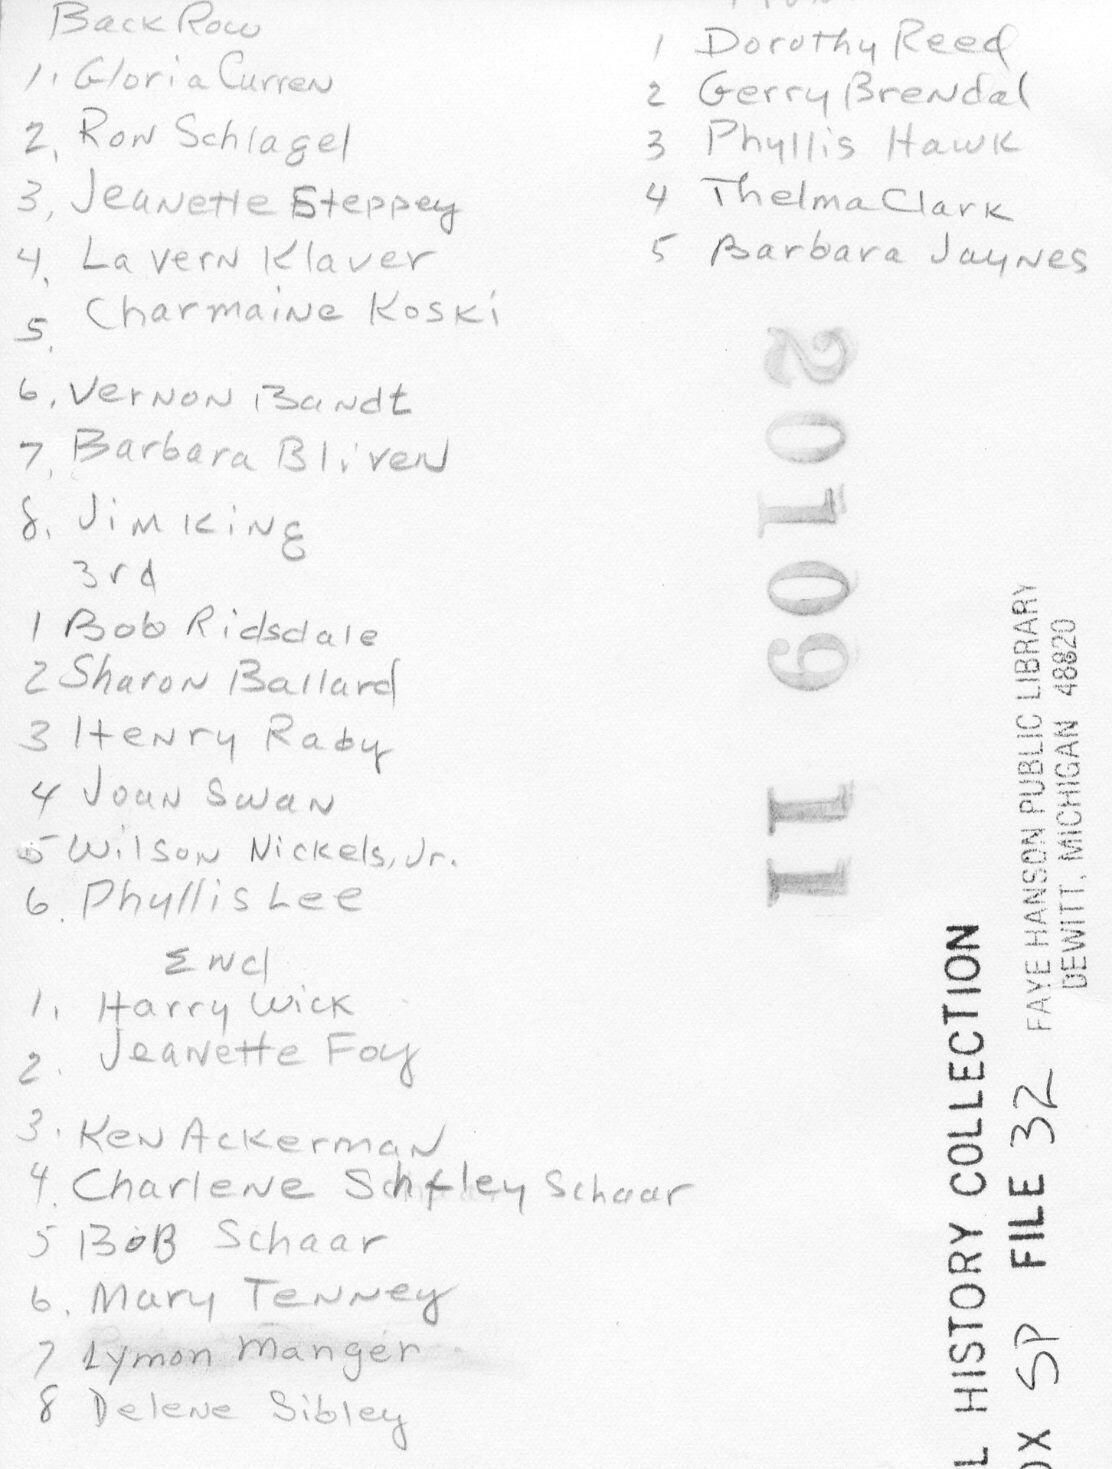 Back Row
1. Gloria Curren
2. Ron Schlagel
3. Jeanette Steppey
4. La Vern Klaver
5. Charmaine Koski
6. Vernon Bandt
7. Barbara Bliven
8. Jim King
3rd
1 Bob Ridsdale
2 Sharon Ballard
3 Henry Raby
4 Joan Swan
5 Wilson Nickels, Jr.
6. Phyllis Lee
2nd
1. Harry Wick
2. Jeanette Foy
3. Ken Ackerman
4. Charlene Schaar
5 Bob Schaar
6. Mary Tenney
7 Lymon Manger
8 Delene Sibley
1 Dorothy Reed
2 Gerry Brendal
3 Phyllis Hawk
4 Thelma Clark
5 Barbara Jaynes
20109 11
FAYE HANSON PUBLIC LIBRARY
DEWITT, MICHIGAN 48820
L HISTORY COLLECTION
OX SP FILE 32